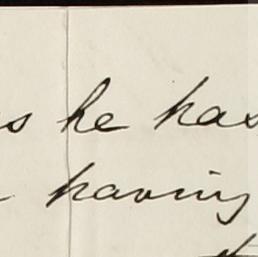 he has
having